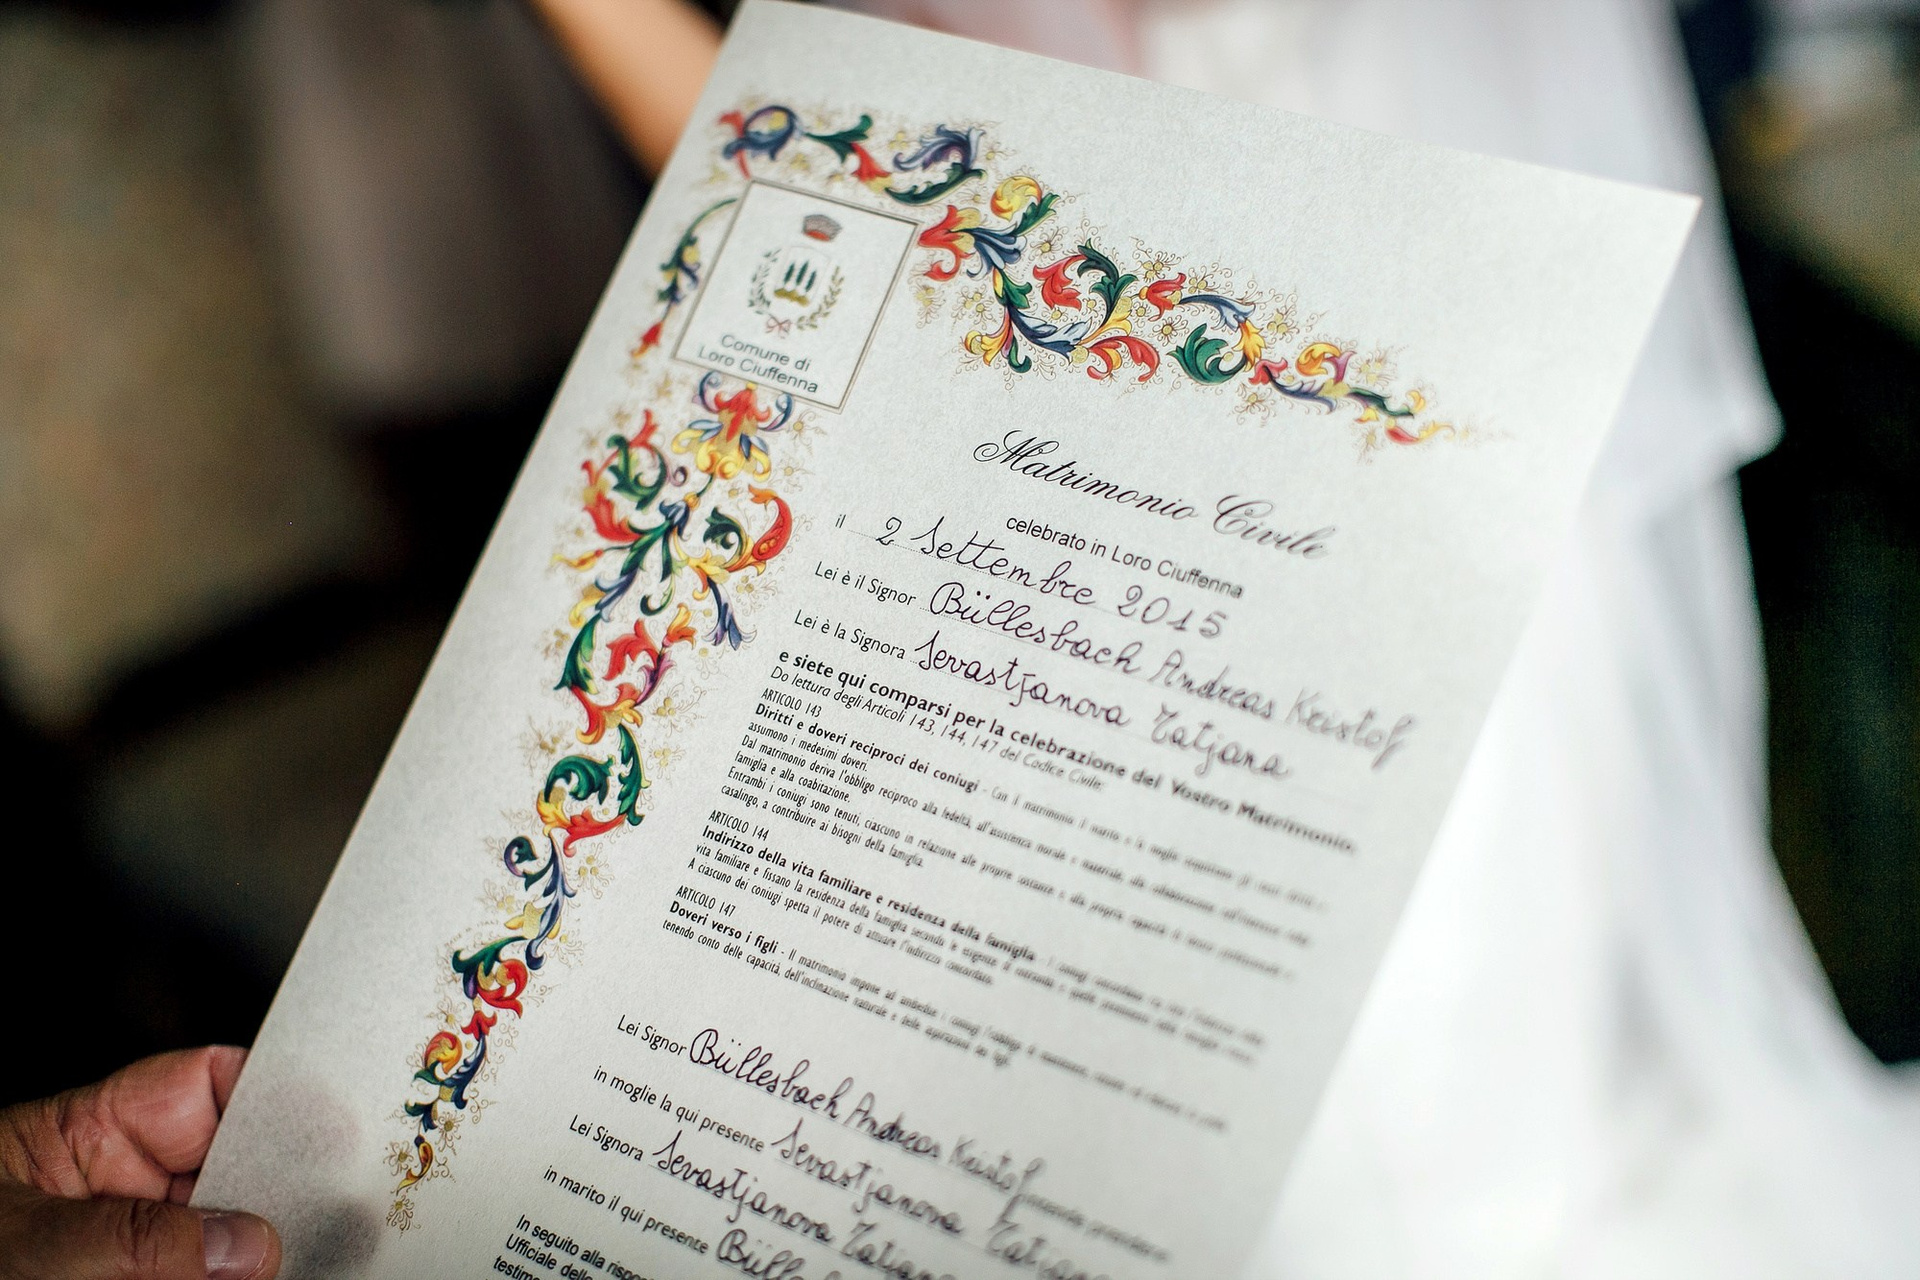 Comune di
Loro Ciuffenna
Matrimonio Civile
celebrato in Loro Ciuffenna
il 2 Settembre 2015
Lei è il Signor Büllesbach Andreas Kristof
Lei è la Signora Sevastjanova Tatjana
e siete qui comparsi per la celebrazione del Vostro Matrimonio.
Do lettura degli Articoli 143, 144, 147 del Codice Civile:
ARTICOLO 143
Diritti e doveri reciproci dei coniugi - Con il matrimonio il marito e la moglie
assumono i medesimi doveri.
Dal matrimonio deriva l'obbligo reciproco alla fedeltà, all'assistenza morale e materiale, alla collaborazione
famiglia e alla coabitazione.
Entrambi i coniugi sono tenuti, ciascuno in relazione alle proprie sostanze e alla propria capacità di lavoro
casalingo, a contribuire ai bisogni della famiglia.
ARTICOLO 144
Indirizzo della vita familiare e residenza della famiglia - I coniugi concordano
vita familiare e fissano la residenza della famiglia secondo le esigenze
A ciascuno dei coniugi spetta il potere di attuare l'indirizzo concordato.
ARTICOLO 147
Doveri verso i figli - Il matrimonio impone ad ambedue i coniugi l'obbligo
tenendo conto delle capacità, dell'inclinazione naturale e delle aspirazioni dei figli.
Lei Signor Büllesbach Andreas Kristof
in moglie la qui presente Sevastjanova
Lei Signora Sevastjanova
in marito il qui presente
In seguito alla
Ufficiale